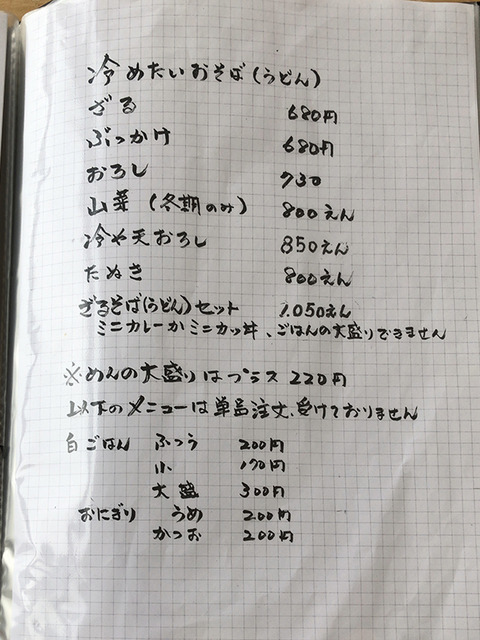 冷めたいおそば(うどん)
ざる 680円
ぶっかけ 680円
おろし 730
山菜 (冬期のみ) 800えん
冷や天おろし 850えん
たぬき 800えん
ざるそば(うどん)セット 1.050えん
ミニカレーかミニカツ丼、ごはんの大盛りできません
※めんの大盛りはプラス 220円
以下のメニューは単品注文、受けておりません
白ごはん ふつう 200円
小 170円
大盛 300円
おにぎり うめ 200円
かつお 200円